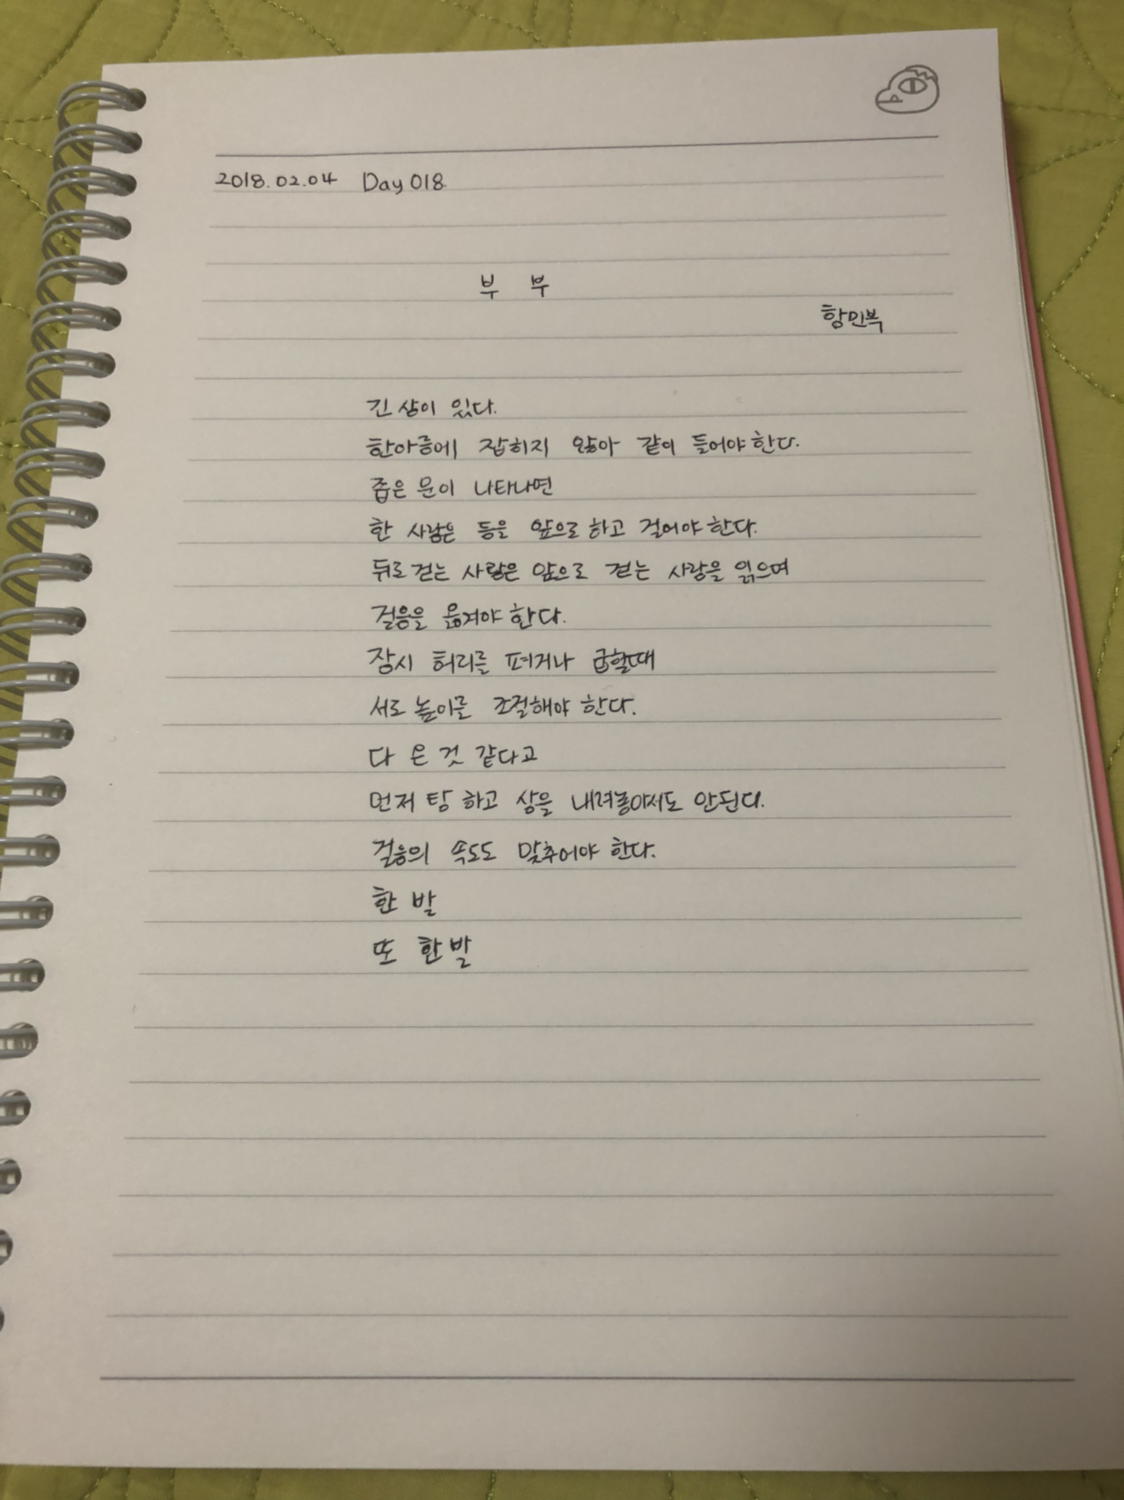 2018.02.04 Day 018
부 부
함민복
긴 상이 있다.
한아름에 잡히지 않아 같이 들어야한다.
좁은 문이 나타나면
한 사람은 등을 앞으로 하고 걸어야 한다.
뒤로 걷는 사람은 앞으로 걷는 사람을 읽으며
걸음을 옮겨야 한다.
잠시 허리를 펴거나 굽힐때
서로 높이를 조절해야 한다.
다 온 것 같다고
먼저 탕 하고 상을 내려놓아서도 안된다.
걸음의 속도도 맞추어야 한다.
한 발
또 한발